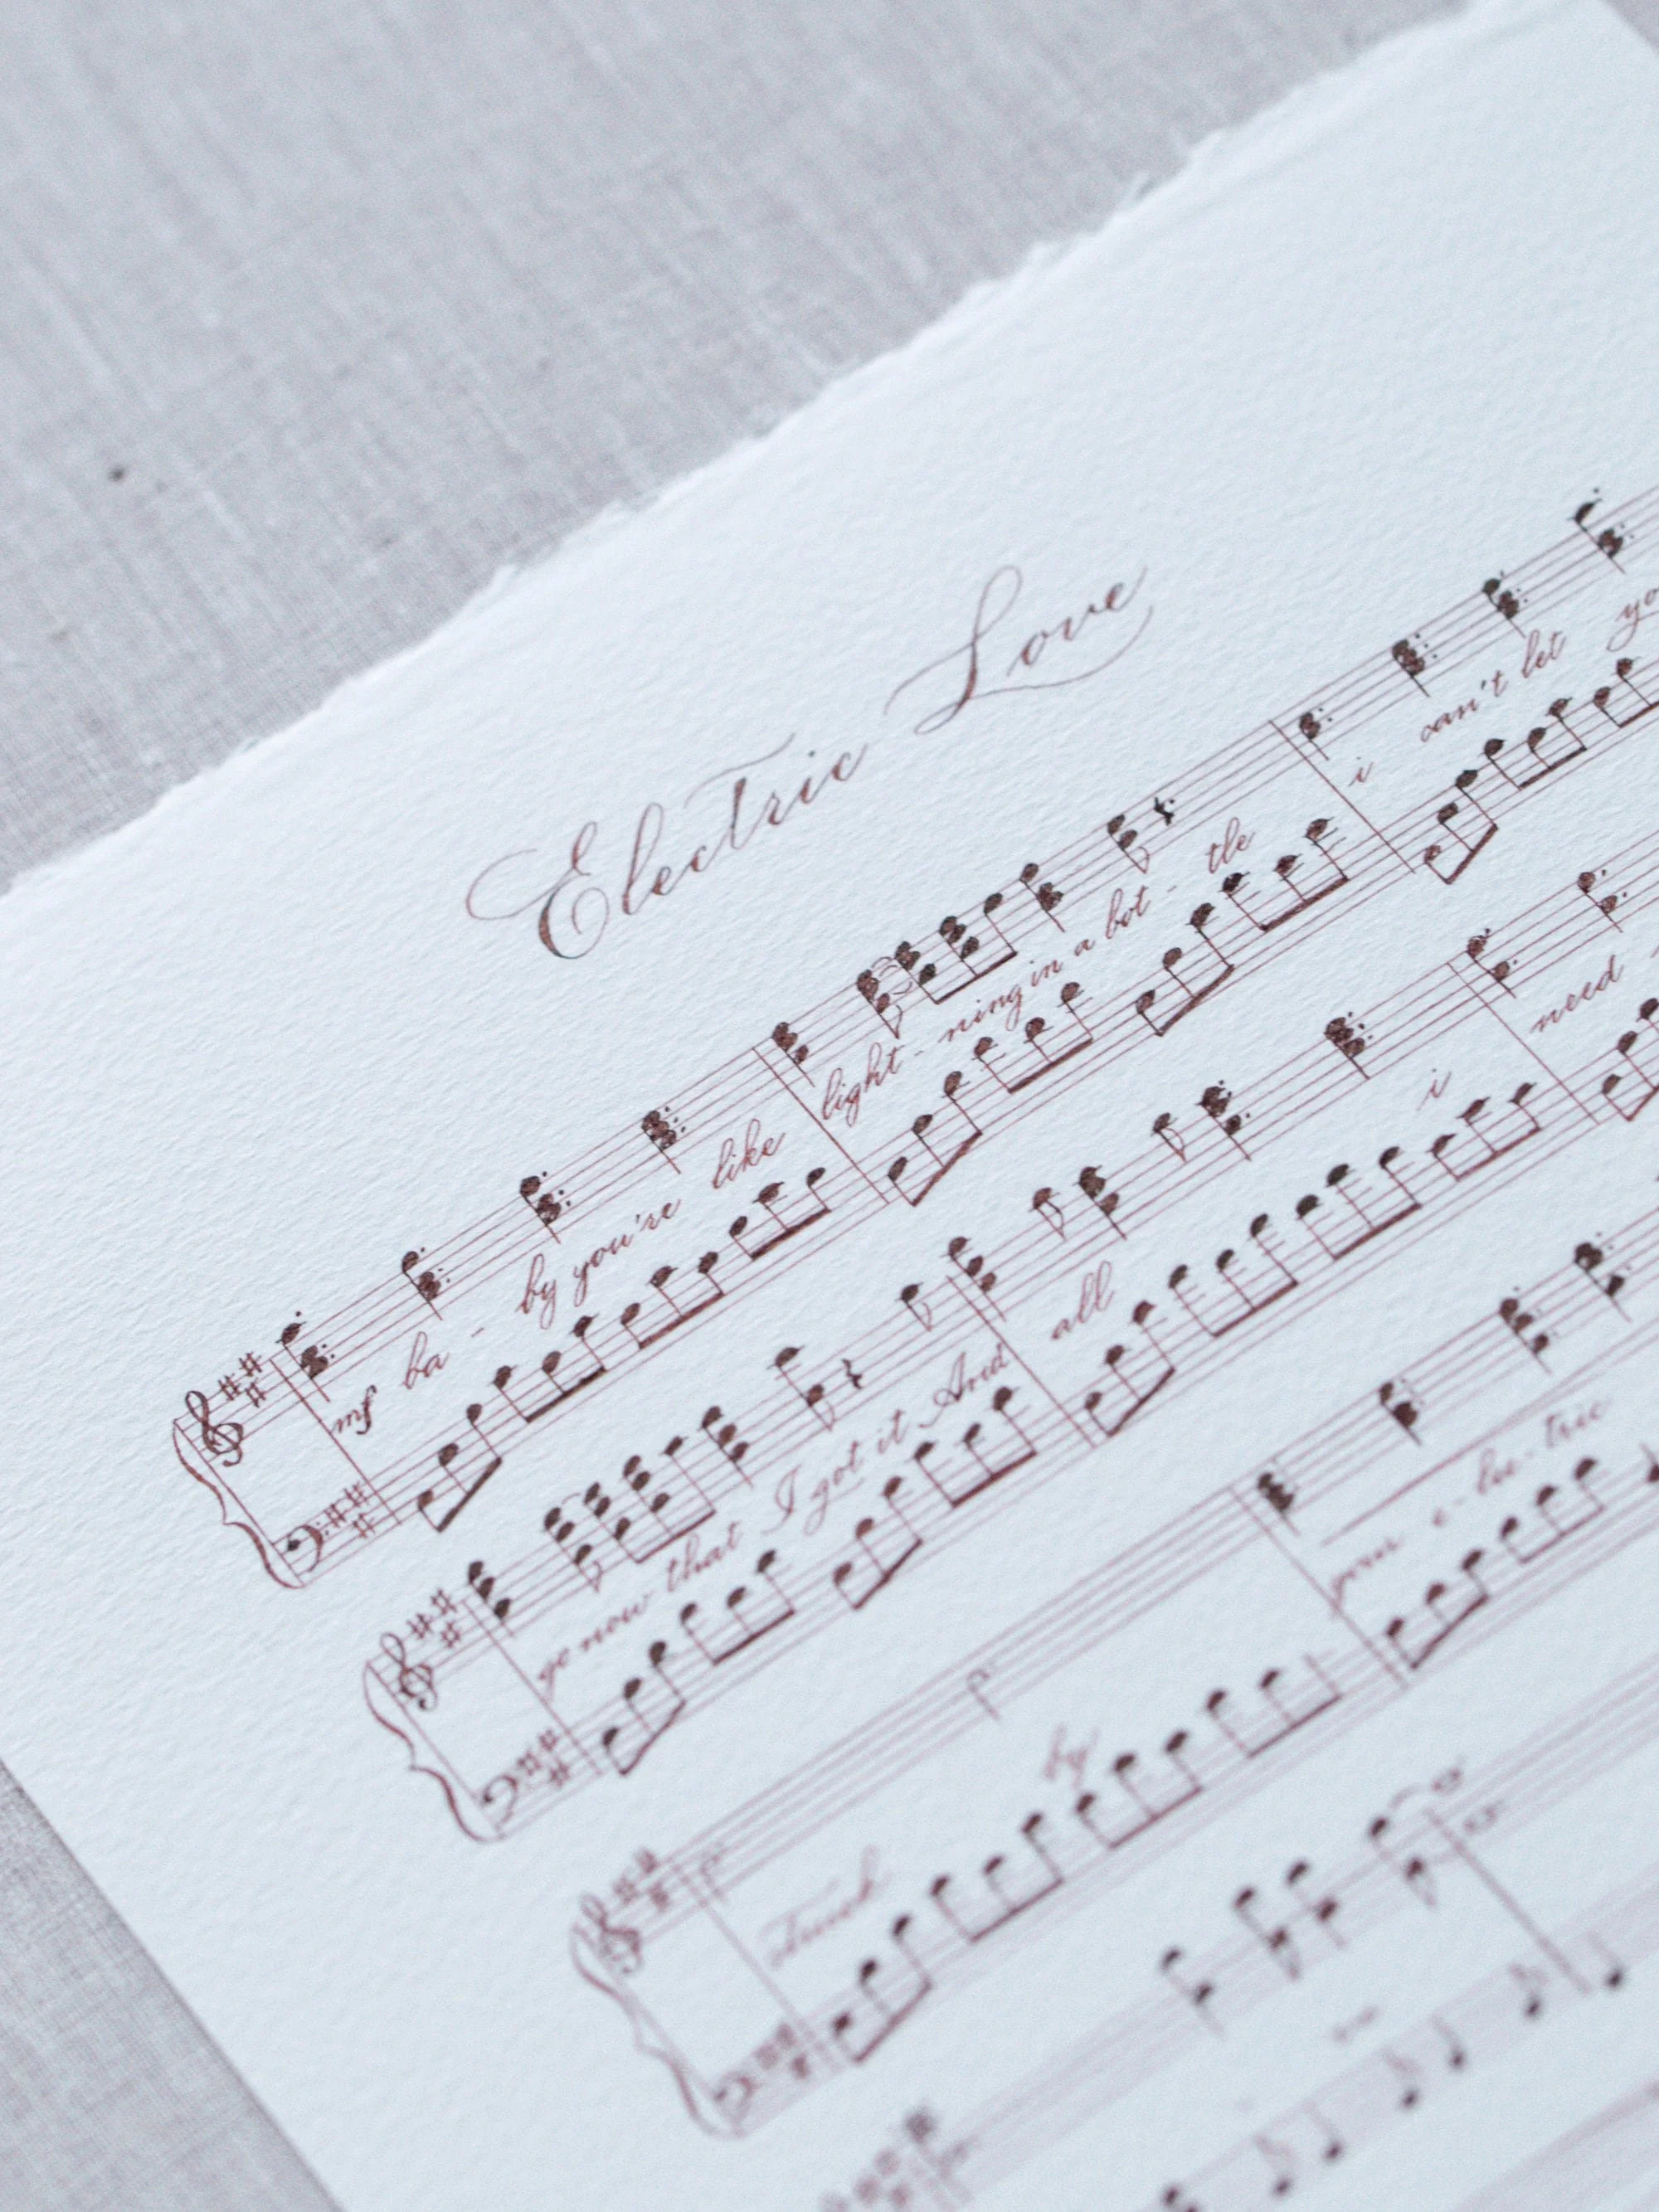 Electric Love
mf ba - by you're like light - ning in a bot - tle i can't let yo
go now that I got it And all i need
Struck by your e - lec - tric